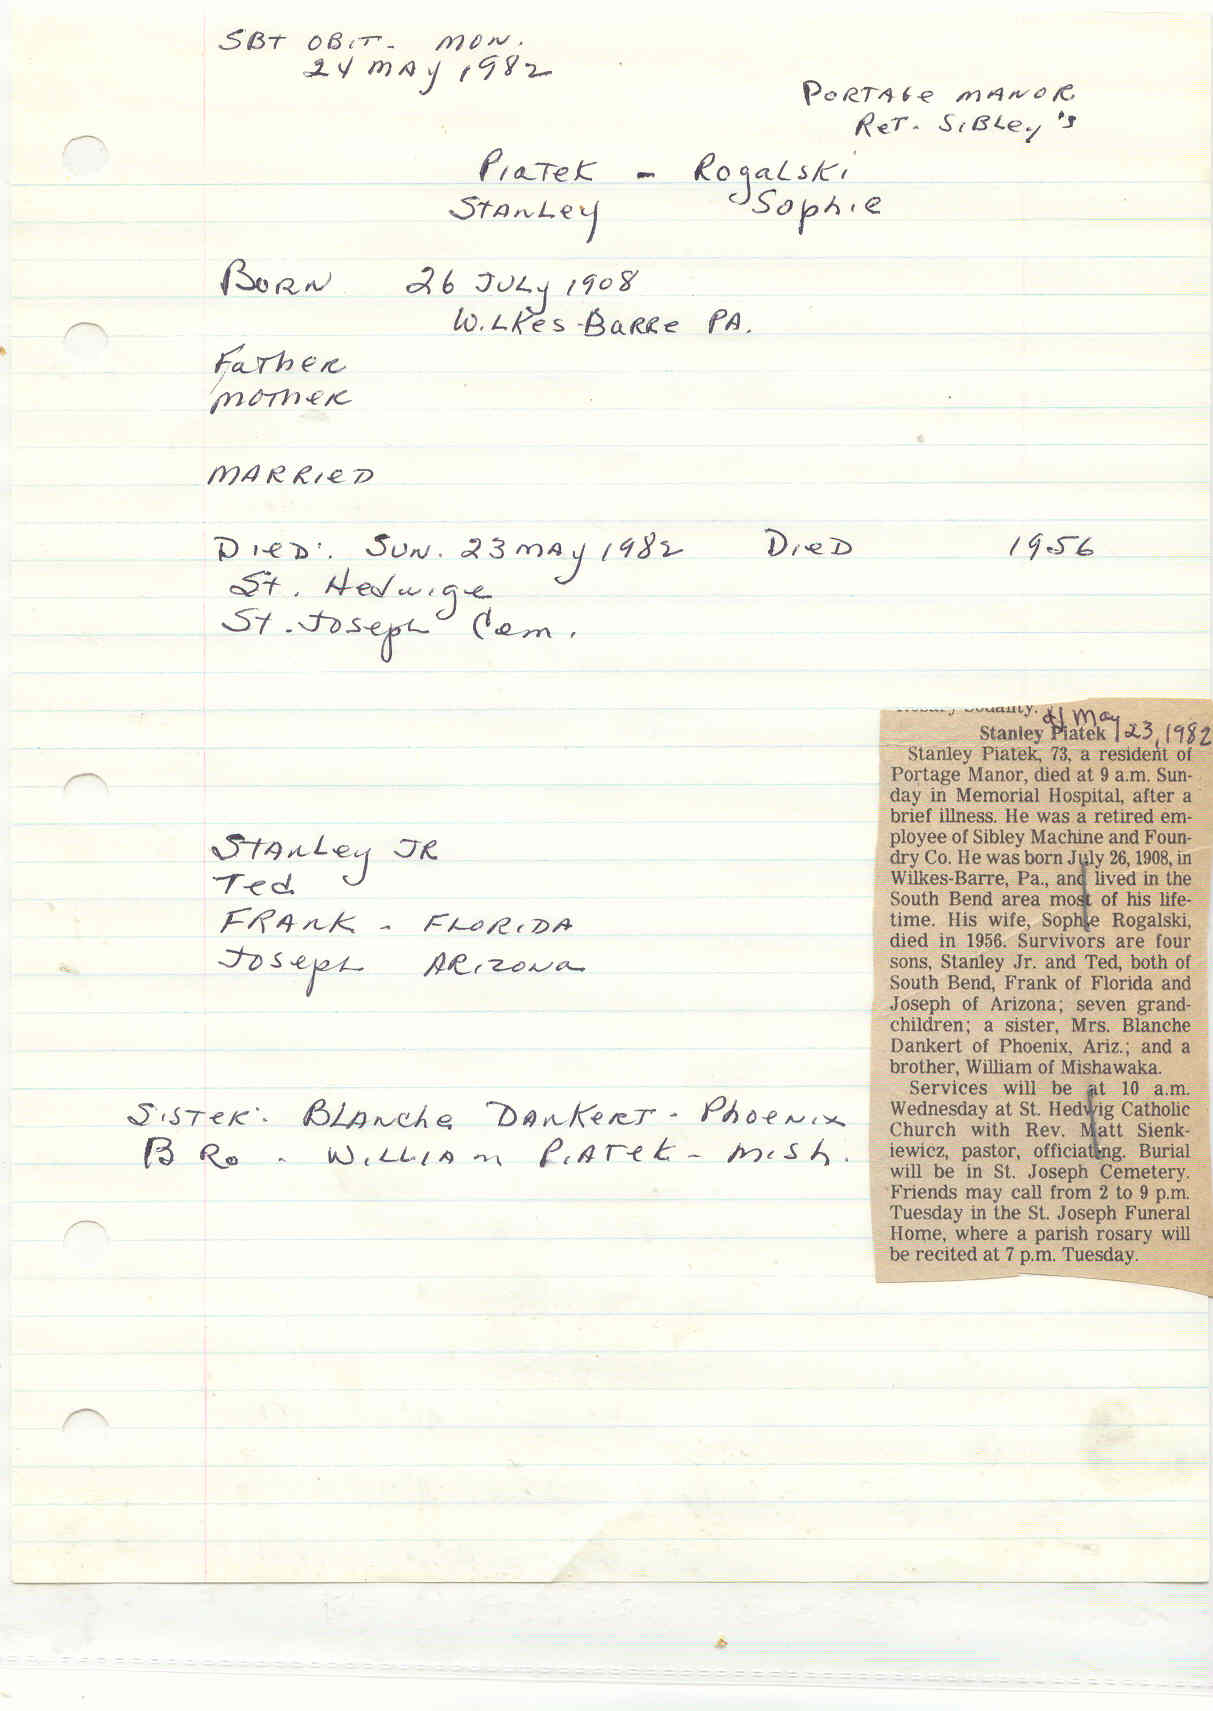 SBT OBIT. MON.
24 MAY 1982
PORTAGE MANOR
RET. SIBLEY'S
PIATEK - ROGALSKI
STANLEY SOPHIE
BORN 26 JULY 1908
WILKES-BARRE PA.
FATHER
MOTHER
MARRIED
DIED: SUN. 23 MAY 1982 DIED 1956
St. Hedwige
St. Joseph Cem.
STANLEY JR
Ted
FRANK - FLORIDA
JOSEPH ARIZONA
SISTER: BLANCHE DANKERT - PHOENIX
BRO - WILLIAM PIATEK - MISH.
Sodality.
May
Stanley Piatek 23, 1982
Stanley Piatek, 73, a resident of
Portage Manor, died at 9 a.m. Sun-
day in Memorial Hospital, after a
brief illness. He was a retired em-
ployee of Sibley Machine and Foun-
dry Co. He was born July 26, 1908, in
Wilkes-Barre, Pa., and lived in the
South Bend area most of his life-
time. His wife, Sophie Rogalski,
died in 1956. Survivors are four
sons, Stanley Jr. and Ted, both of
South Bend, Frank of Florida and
Joseph of Arizona; seven grand-
children; a sister, Mrs. Blanche
Dankert of Phoenix, Ariz.; and a
brother, William of Mishawaka.
Services will be at 10 a.m.
Wednesday at St. Hedwig Catholic
Church with Rev. Matt Sienk-
iewicz, pastor, officiating. Burial
will be in St. Joseph Cemetery.
Friends may call from 2 to 9 p.m.
Tuesday in the St. Joseph Funeral
Home, where a parish rosary will
be recited at 7 p.m. Tuesday.